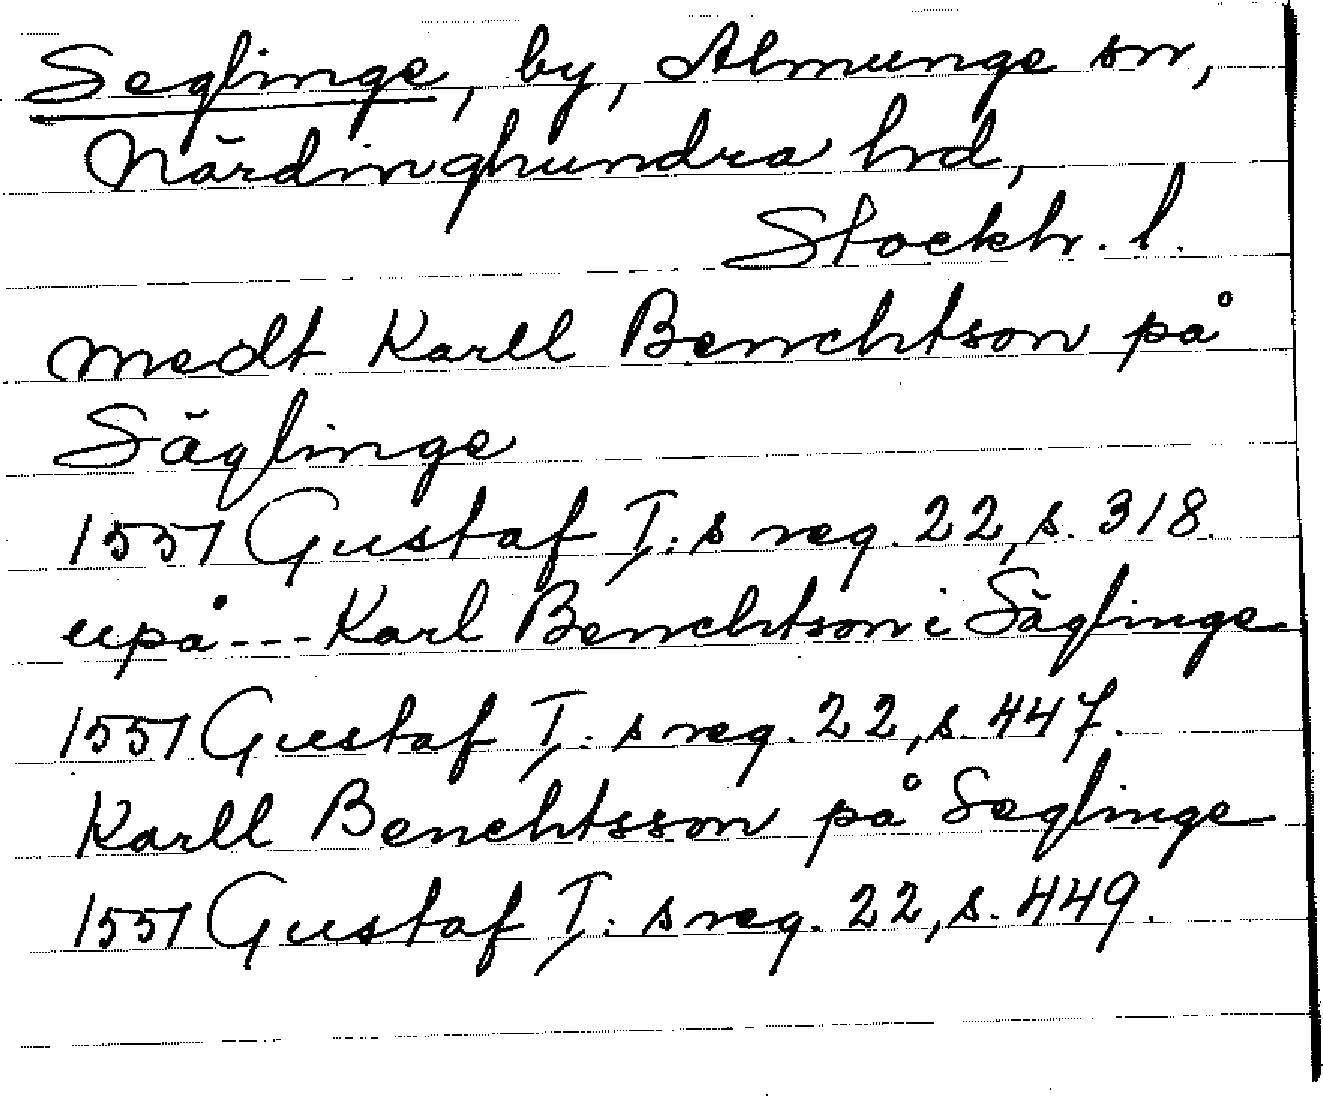 Seglinge, by, Almunge sn,
Närdinghundra hrd,
Stockh. l.
medt Karll Benchtson på
Säglinge
1551 Gustaf I:s reg. 22, s. 318.
upå --- Karl Benchtson i Säglinge
1551 Gustaf I:s reg. 22, s. 447.
Karll Benchtsson på Seglinge
1551 Gustaf I:s reg. 22, s. 449.